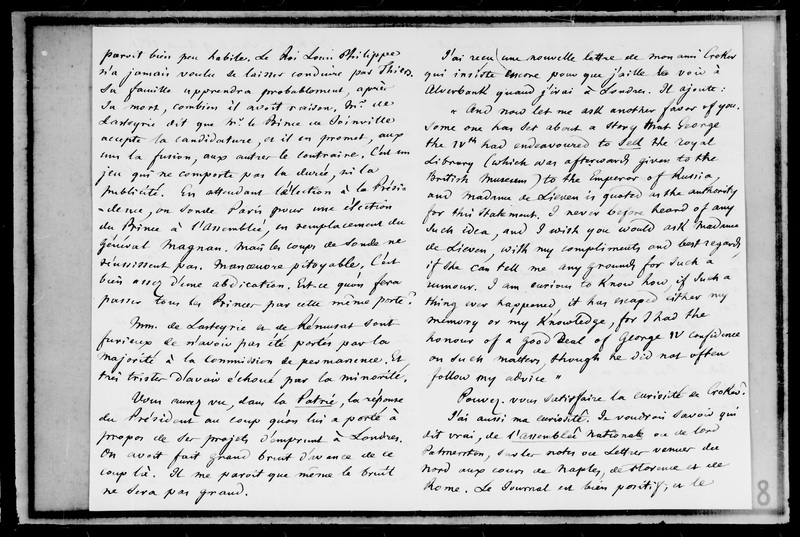 paroit bien peu habile. Le Roi Louis Philippe
n'a jamais voulu se laisser conduire par Thiers.
Sa famille apprendra probablement, après
sa mort, combien il avoit raison. Mr. de
Lasteyrie dit que Mr. le Prince de Joinville
accepte la candidature, et il en promet, aux
uns la fusion, aux autres le contraire. C'est un
jeu qui ne comporte pas la durée, ni la
publicité. En attendant l'élection à la Présid-
-dence, on sonde Paris pour une élection
du Prince à l'Assemblée, en remplacement du
Général Magnan. Mais les coups de sonde ne
réussissent pas. Manœuvre pitoyable. C'est
bien assez d'une abdication. Est-ce qu'on fera
passer tous les Princes par cette même porte?
Mm. de Lasteyrie et de Rémusat sont
furieux de n'avoir pas été portés par la
majorité à la Commission de permanence. Et
très tristes d'avoir échoué par la minorité.
Vous aurez vu, dans la Patrie, la réponse
du Président au coup qu'on lui a porté à
propos de ses projets d'emprunt à Londres.
On avoit fait grand bruit d'avance de ce
coup là. Il me paroit que même le bruit
ne sera pas grand.
J'ai reçu une nouvelle lettre de mon ami Croker
qui insiste encore pour que j'aille le voir à
Alverbank quand j'irai à Londres. Il ajoute:
"And now let me ask another favor of you.
Some one has set about a story that George
the IVth had endeavoured to sell the royal
Library (which was afterwards given to the
British Museum) to the Emperor of Russia,
and Madame de Lieven is quoted as the authority
for this statement. I never before heard of any
such idea, and I wish you would ask Madame
de Lieven, with my compliments and best regards,
if she can tell me any grounds for such a
rumour. I am curious to know how, if such a
thing ever happened, it has escaped either my
memory or my knowledge, for I had the
honour of a good deal of George IV confidence
on such matters, though he did not often
follow my advice"
Pouvez-vous satisfaire la curiosité de Croker?
J'ai aussi ma curiosité. Je voudrois savoir qui
dit vrai, de l'assemblée nationale ou de lord
Palmerston, sur les notes ou lettres venues du
nord aux cours de Naples, de Florence et de
Rome. Le Journal est bien positif, et le
8